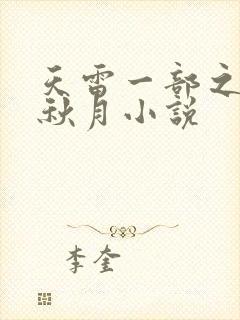 天雷一部之
秋月小説
李奎